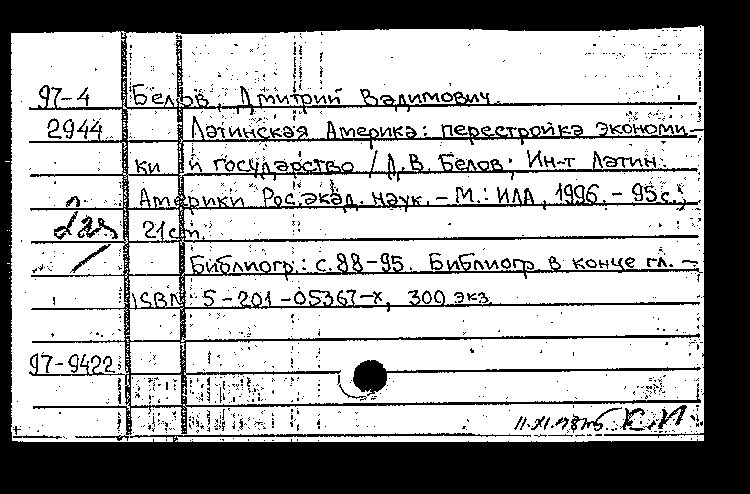 97-4 Белов, Дмитрий Вадимович.
2944 Латинская Америка: перестройка экономи-
ки и государство / Д.В. Белов; Ин-т Латин.
Америки Рос. акад. наук. - М.: ИЛА, 1996. - 95 с.;
21 cm.
Библиогр.: с. 88-95. Библиогр. в конце гл. -
ISBN 5-201-05367-x, 300 экз.
97-9422